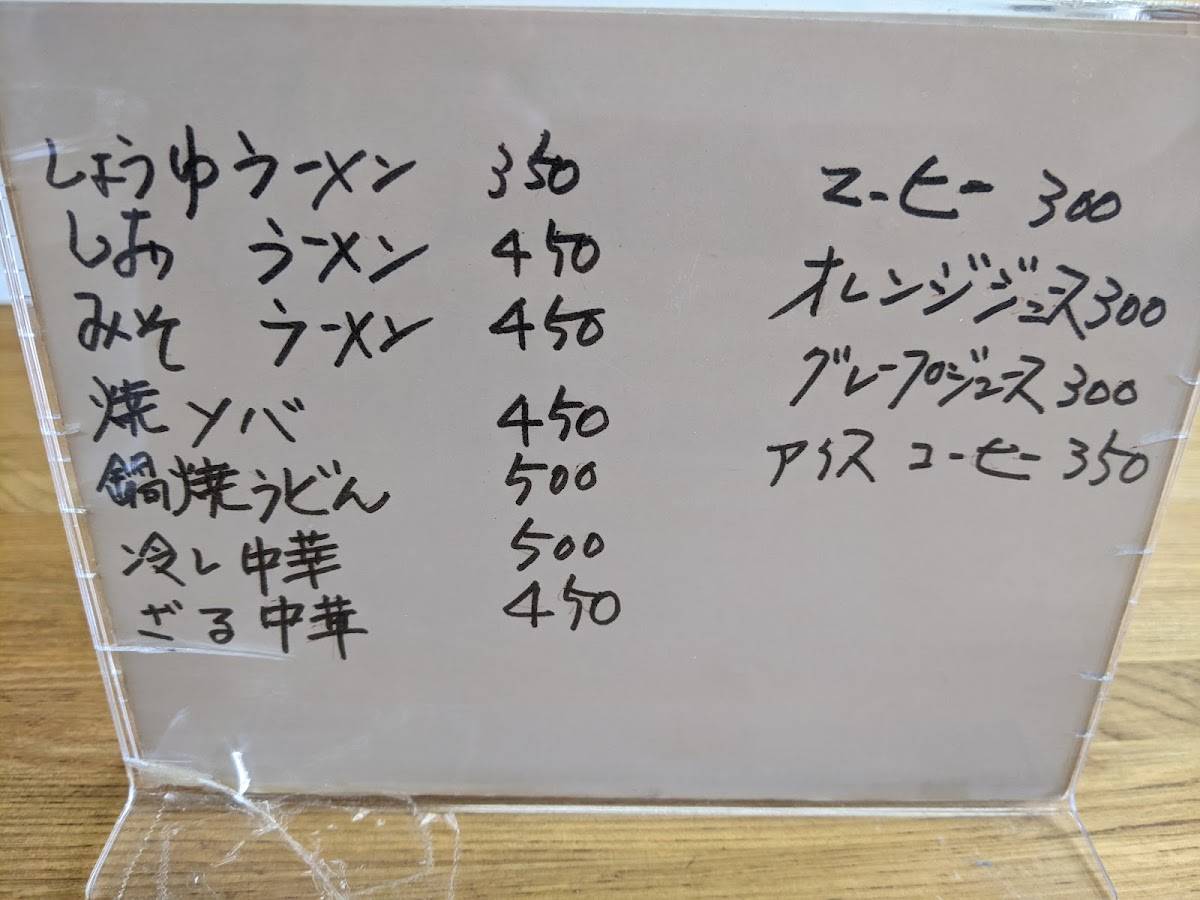 しょうゆラーメン 350
しお ラーメン 450
みそ ラーメン 450
焼ソバ 450
鍋焼うどん 500
冷し中華 500
ざる中華 450
コーヒー 300
オレンジジュース 300
グレープジュース 300
アイスコーヒー 350